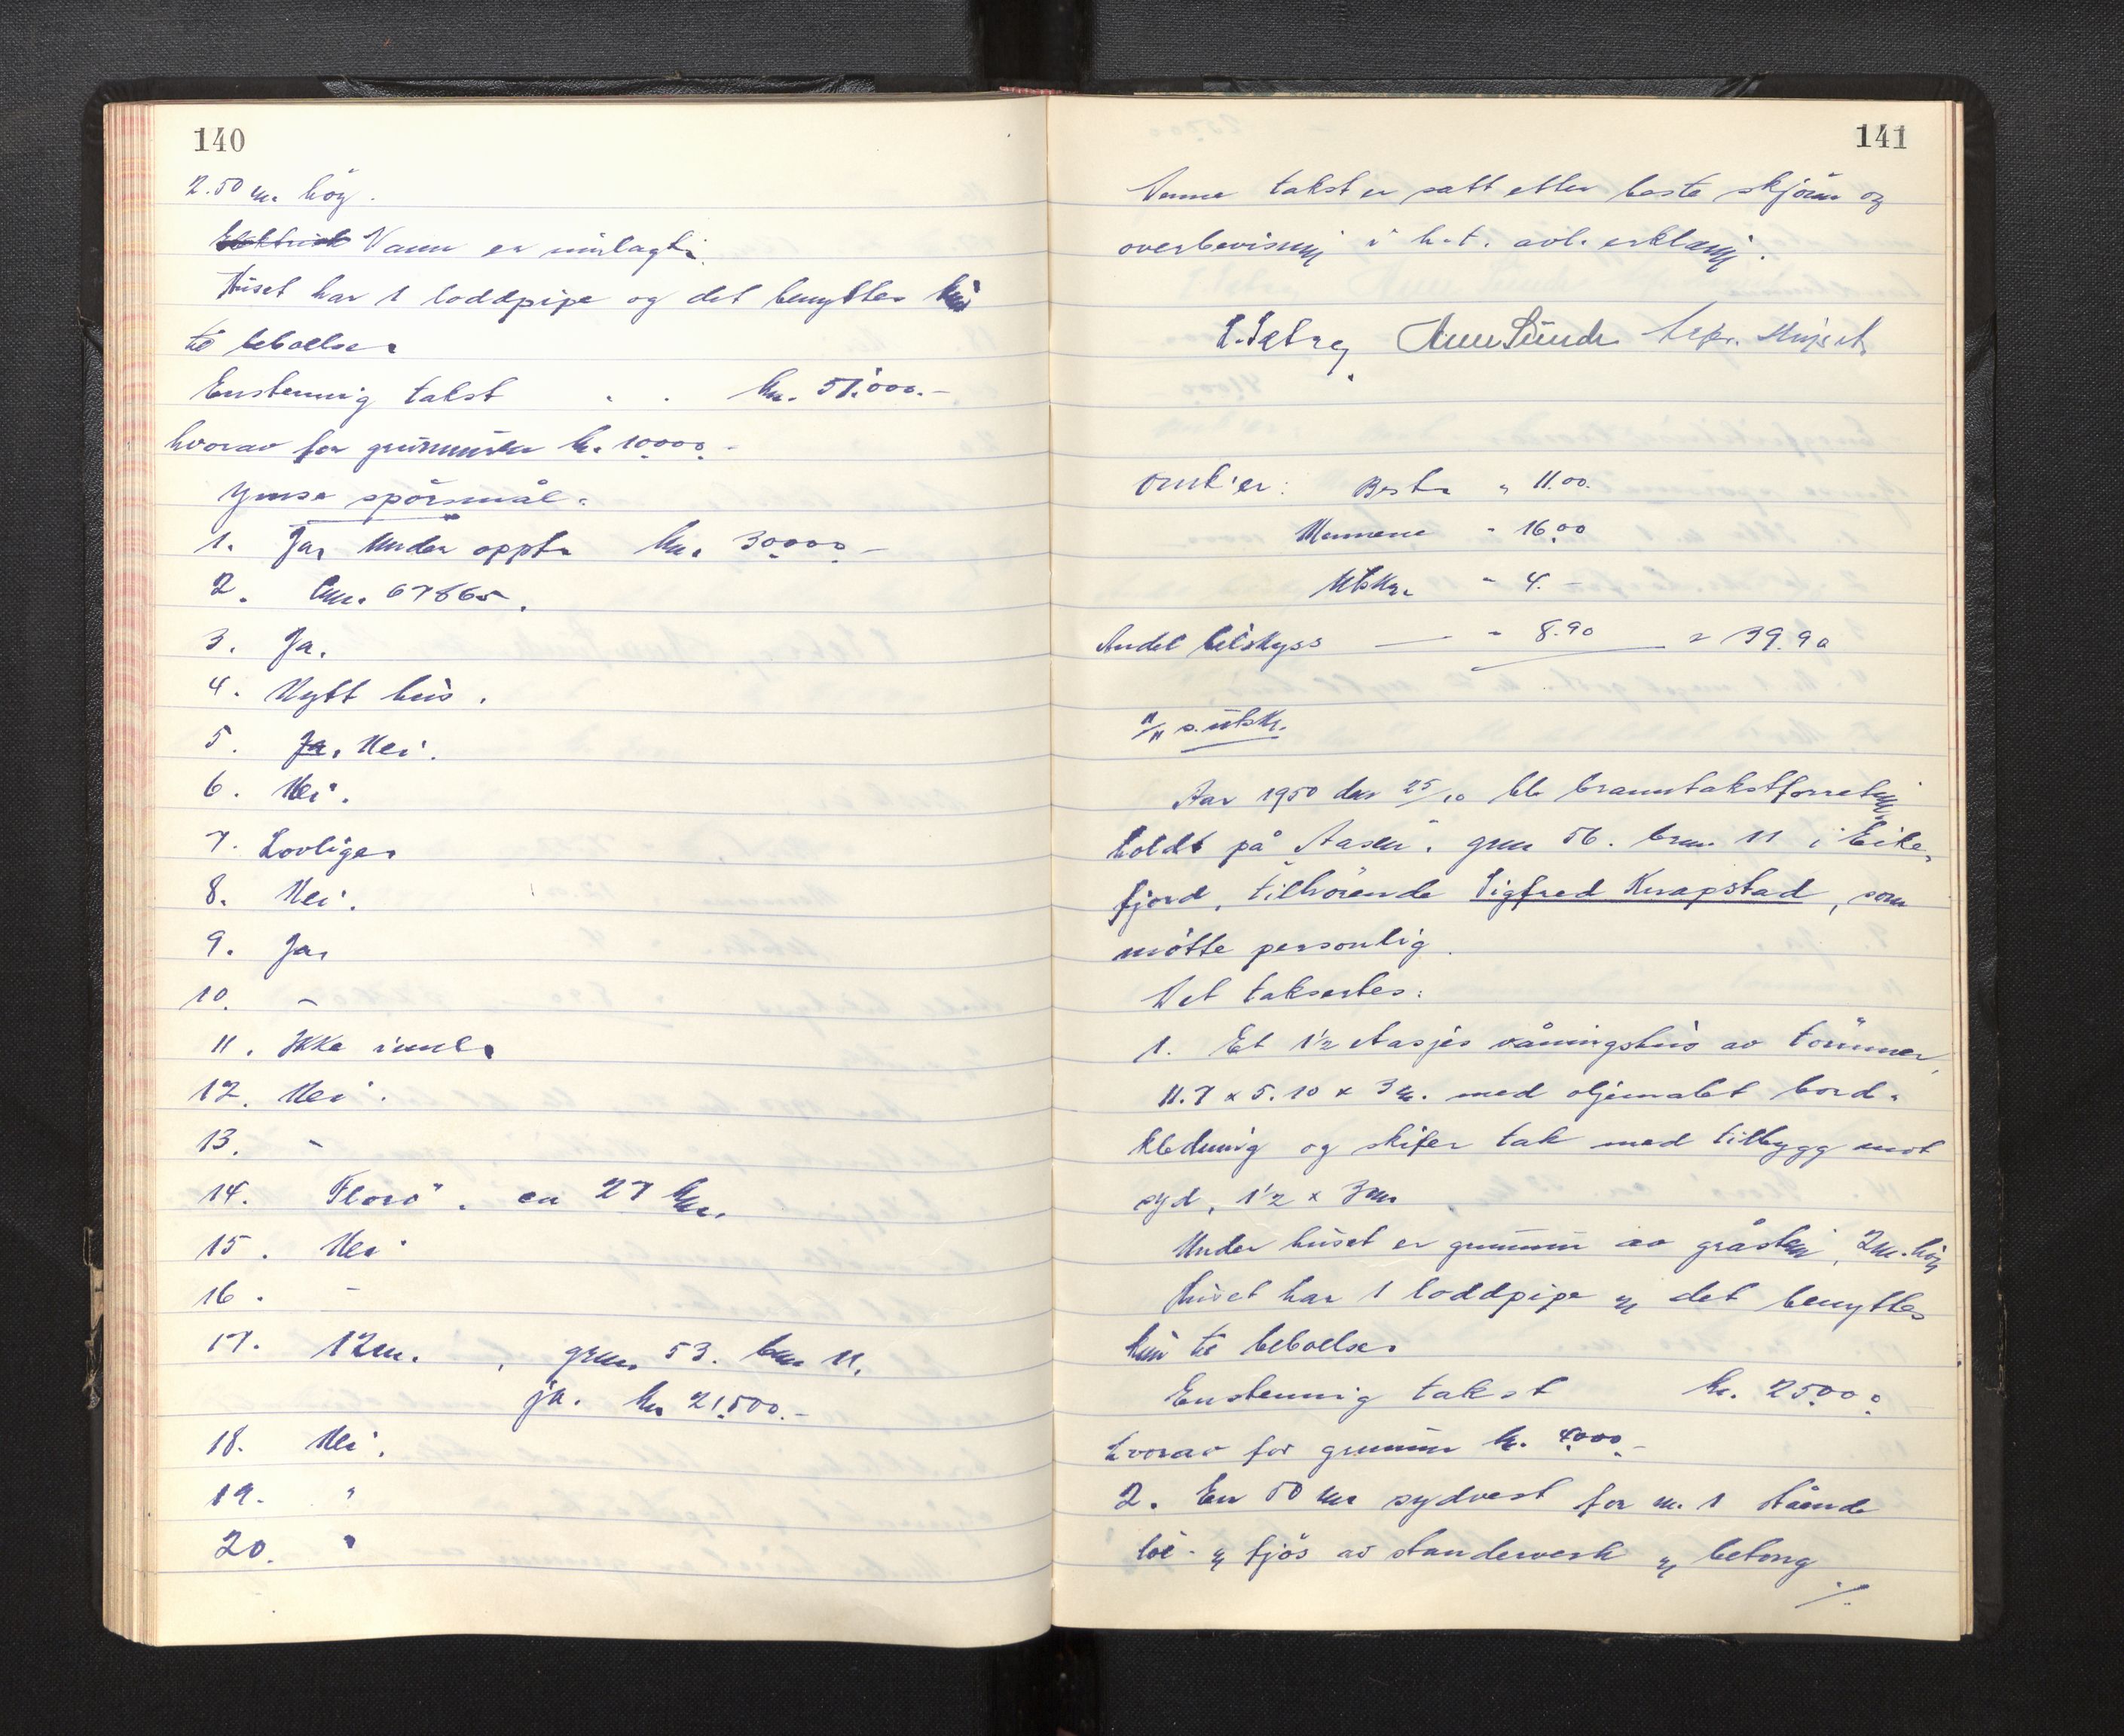 140
2.50 m. høg.
Elektrisk Vann er innlagt.
Huset har 1 loddpipe og det benyttes kun
til beboelse.
Enstemmig takst kr. 51.000.-
hvorav for grunnmur kr. 10000.-
Ymse spørsmål.
1. Ja, under oppf. kr. 30000.-
2. Enr. 67865.
3. Ja.
4. Nytt hus.
5. Ja. Nei.
6. Nei.
7. Lovlige.
8. Nei.
9. Ja.
10. -
11. Ikke innl.
12. Nei.
13. -
14. Florø. ca 27 km.
15. Nei
16. -
17. 12m. , gnr. 53. bnr 11.
ja. kr 21.500.-
18. Nei.
19. "
20. "
141
Denne takst er satt etter beste skjønn og
overbevisning i h.t. avl. erklæring.
Omk'er: Best. " 11.00.
Mennene " 16.00
Utskr. " 4.-
Andel bilskyss — " 8.90 = 39.90
11/11 s. utskr.
Aar 1950 den 25/10 ble branntakstforretning
holdt på "Aasen". gnr 56. bnr. 11 i Eike-
fjord, tilhørende Sigfred Knapstad, som
møtte personlig.
Det takseres:
1. Et 1½ etasjes våningshus av tømmer,
11.7 x 5.10 x 3 m. med oljemalet bord-
kledning og skifer tak med tilbygg mot
syd, 1½ x 3m
Under huset er grunnmur av gråstein, 2m. høg
Huset har 1 loddpipe og det benyttes
kun til beboelse.
Enstemmig takst kr. 25000
hvorav for grunnmur kr. 4000.-
2. En 50 m sydvest for nr. 1 stående
løe- og fjøs av standerverk og betong
./.